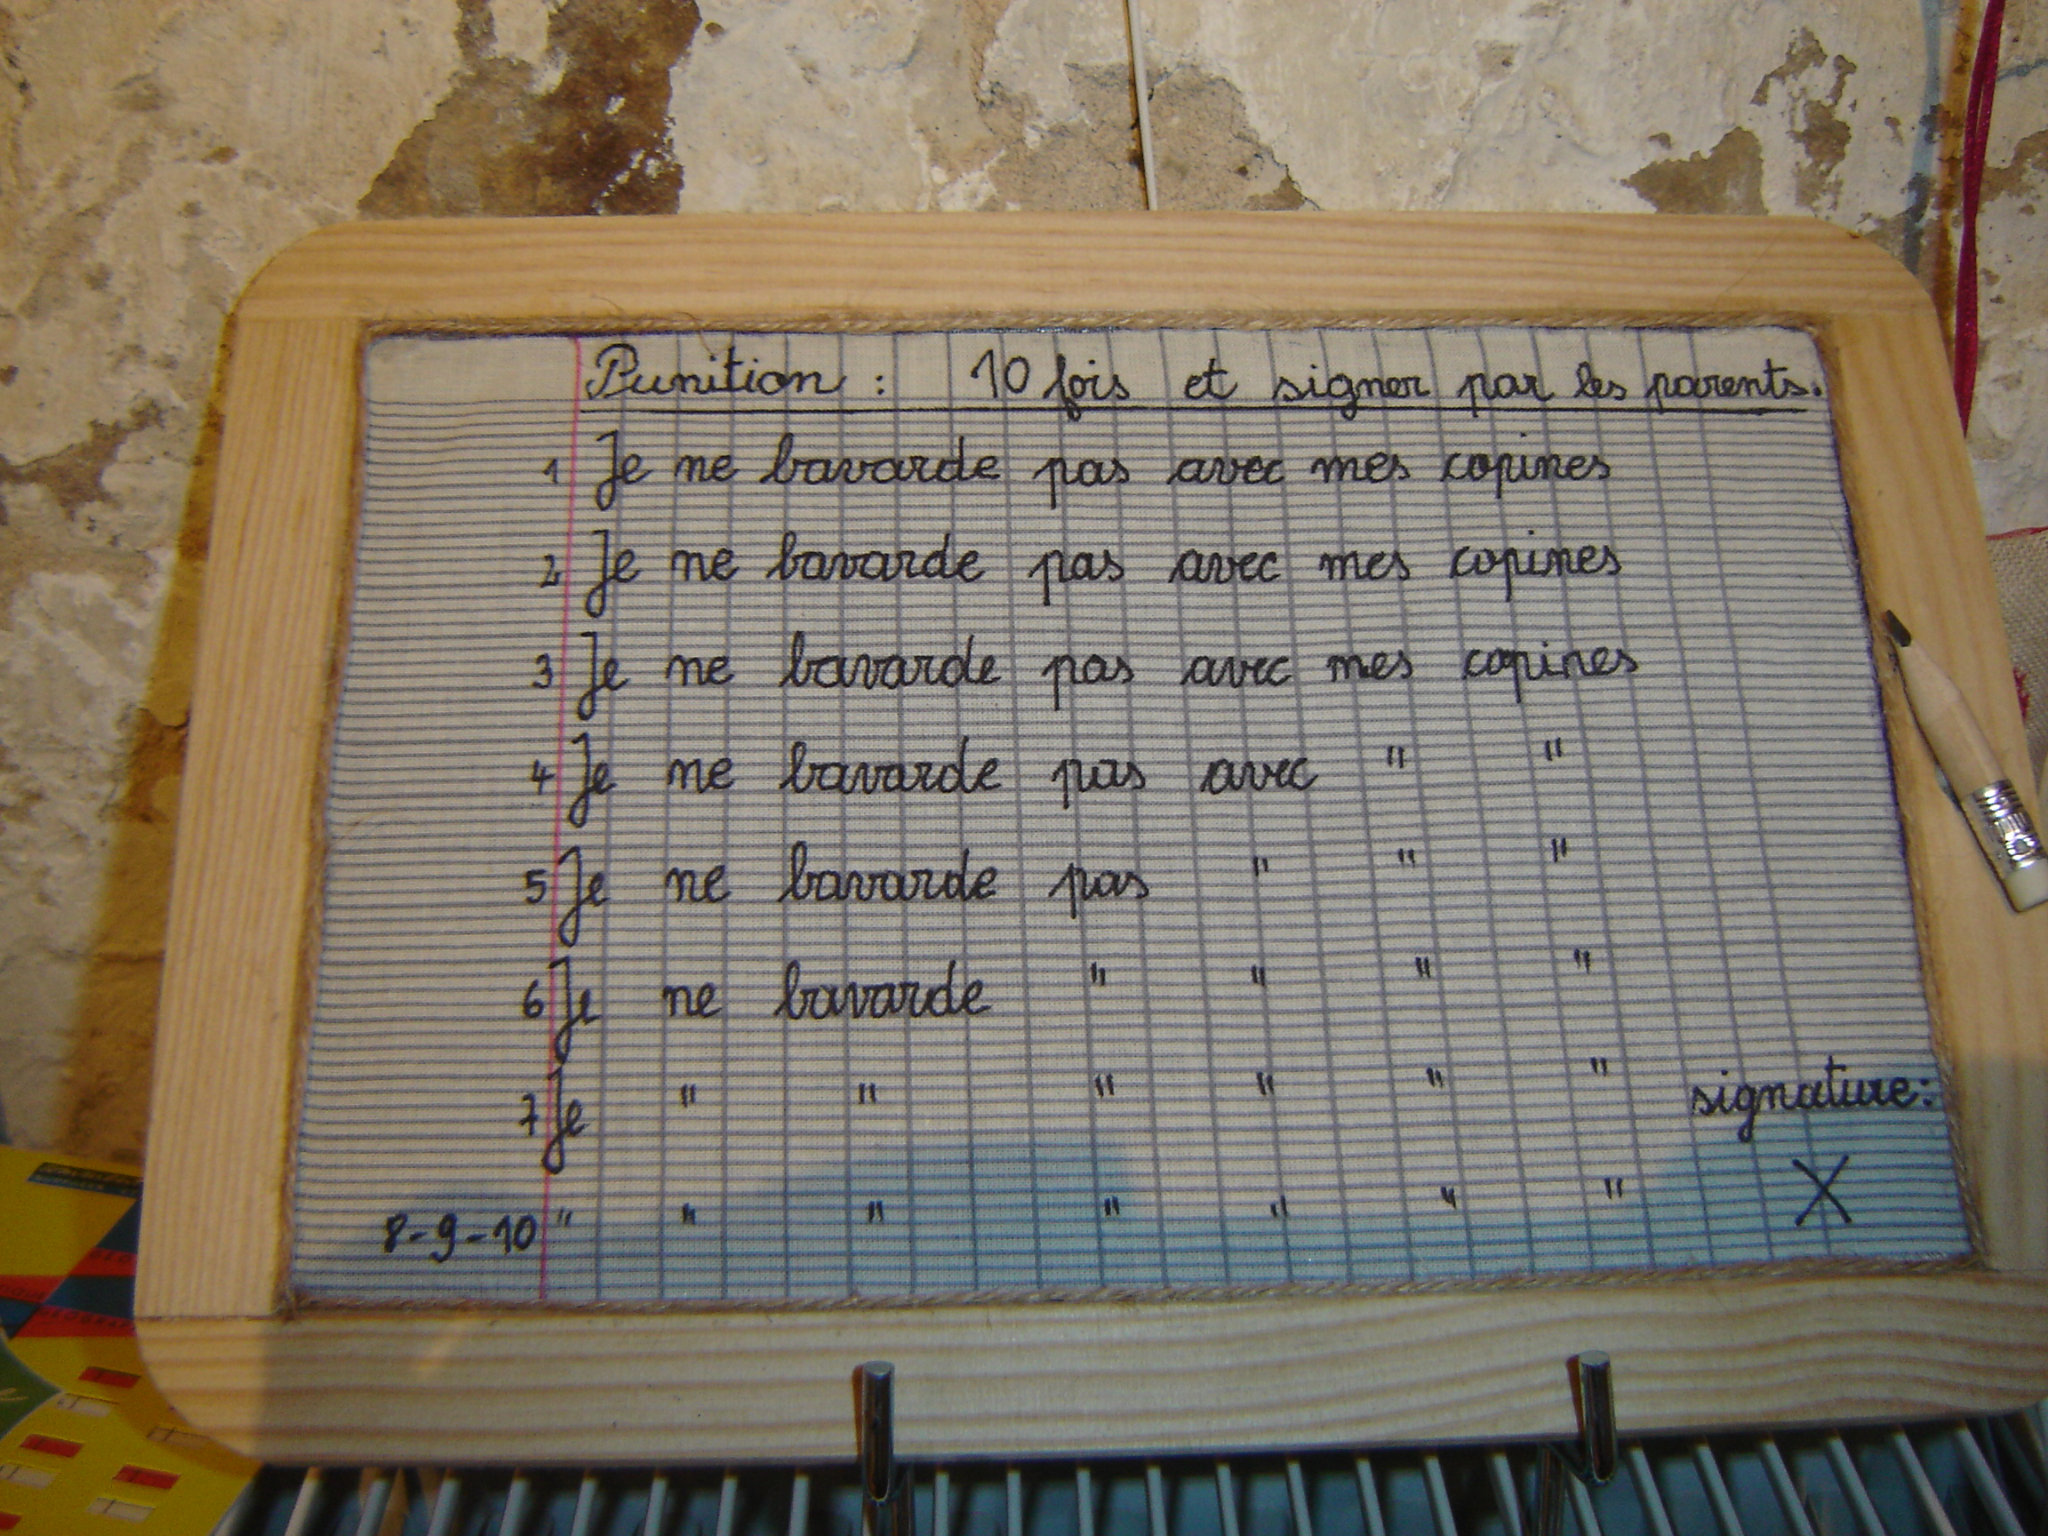 Punition : 10 fois et signer par les parents.
1 Je ne bavarde pas avec mes copines
2 Je ne bavarde pas avec mes copines
3 Je ne bavarde pas avec mes copines
4 Je ne bavarde pas avec " "
5 Je ne bavarde pas " " "
6 Je ne bavarde " " " "
7 Je " " " " " "
signature:
8-9-10 " " " " " " " X